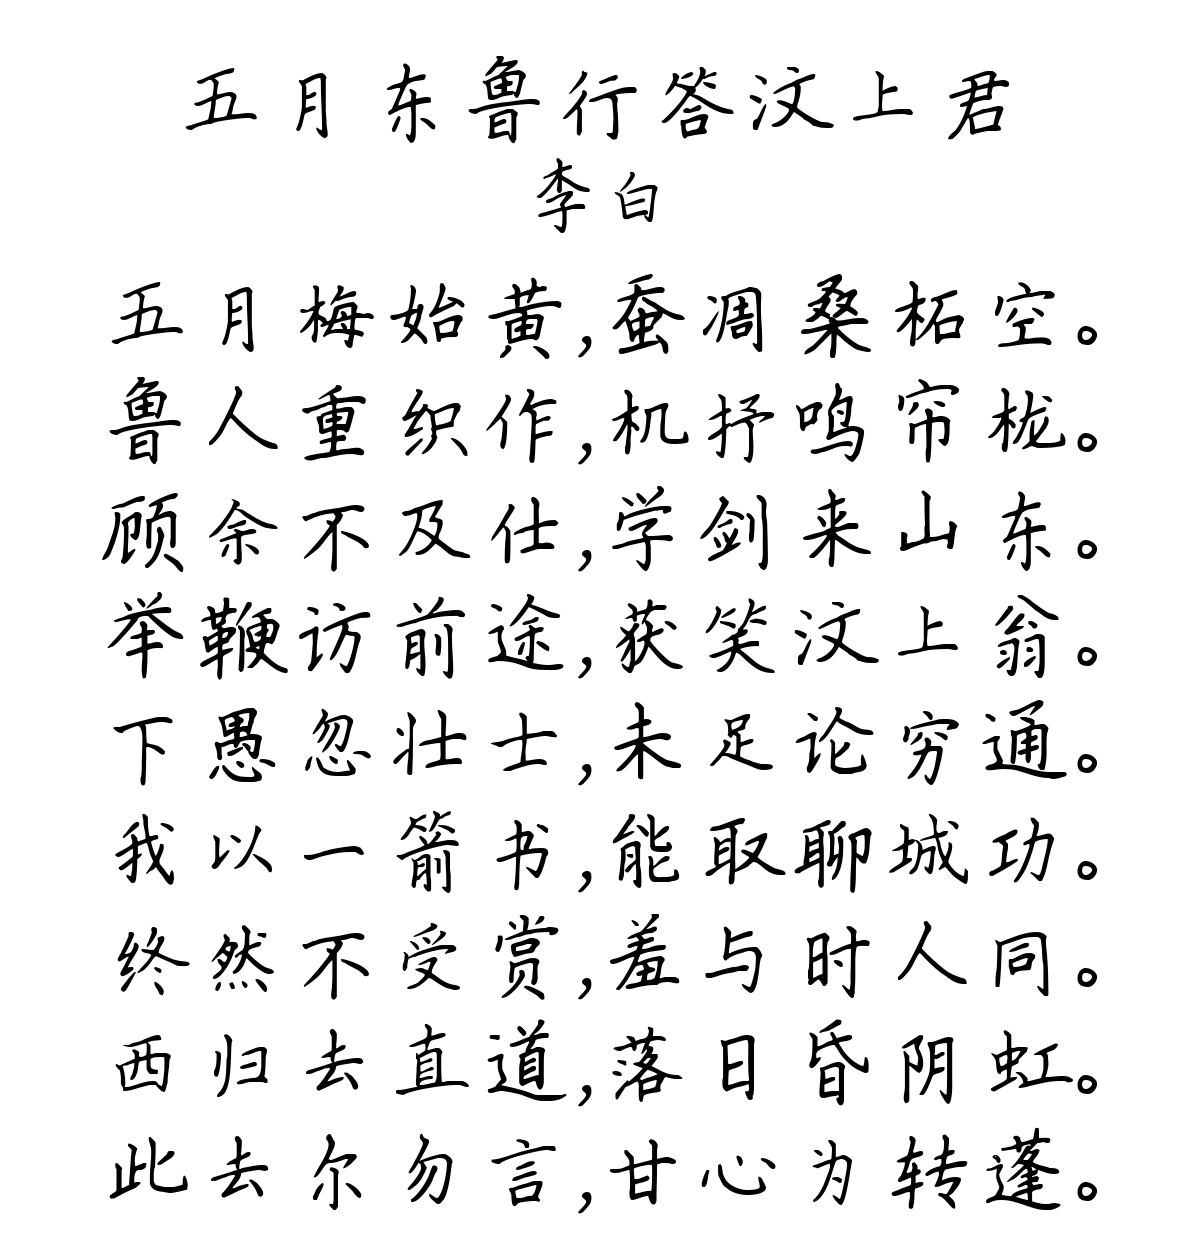 五月东鲁行答汶上君
李白
五月梅始黄,蚕凋桑柘空。
鲁人重织作,机抒鸣帘栊。
顾余不及仕,学剑来山东。
举鞭访前途,获笑汶上翁。
下愚忽壮士,未足论穷通。
我以一箭书,能取聊城功。
终然不受赏,羞与时人同。
西归去直道,落日昏阴虹。
此去尔勿言,甘心为转蓬。